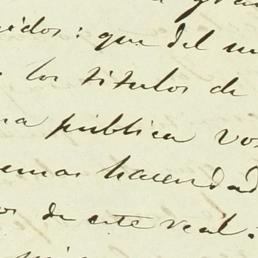 idos: que del
los titulos de
na publica vo
emas haciendad
os de este real.